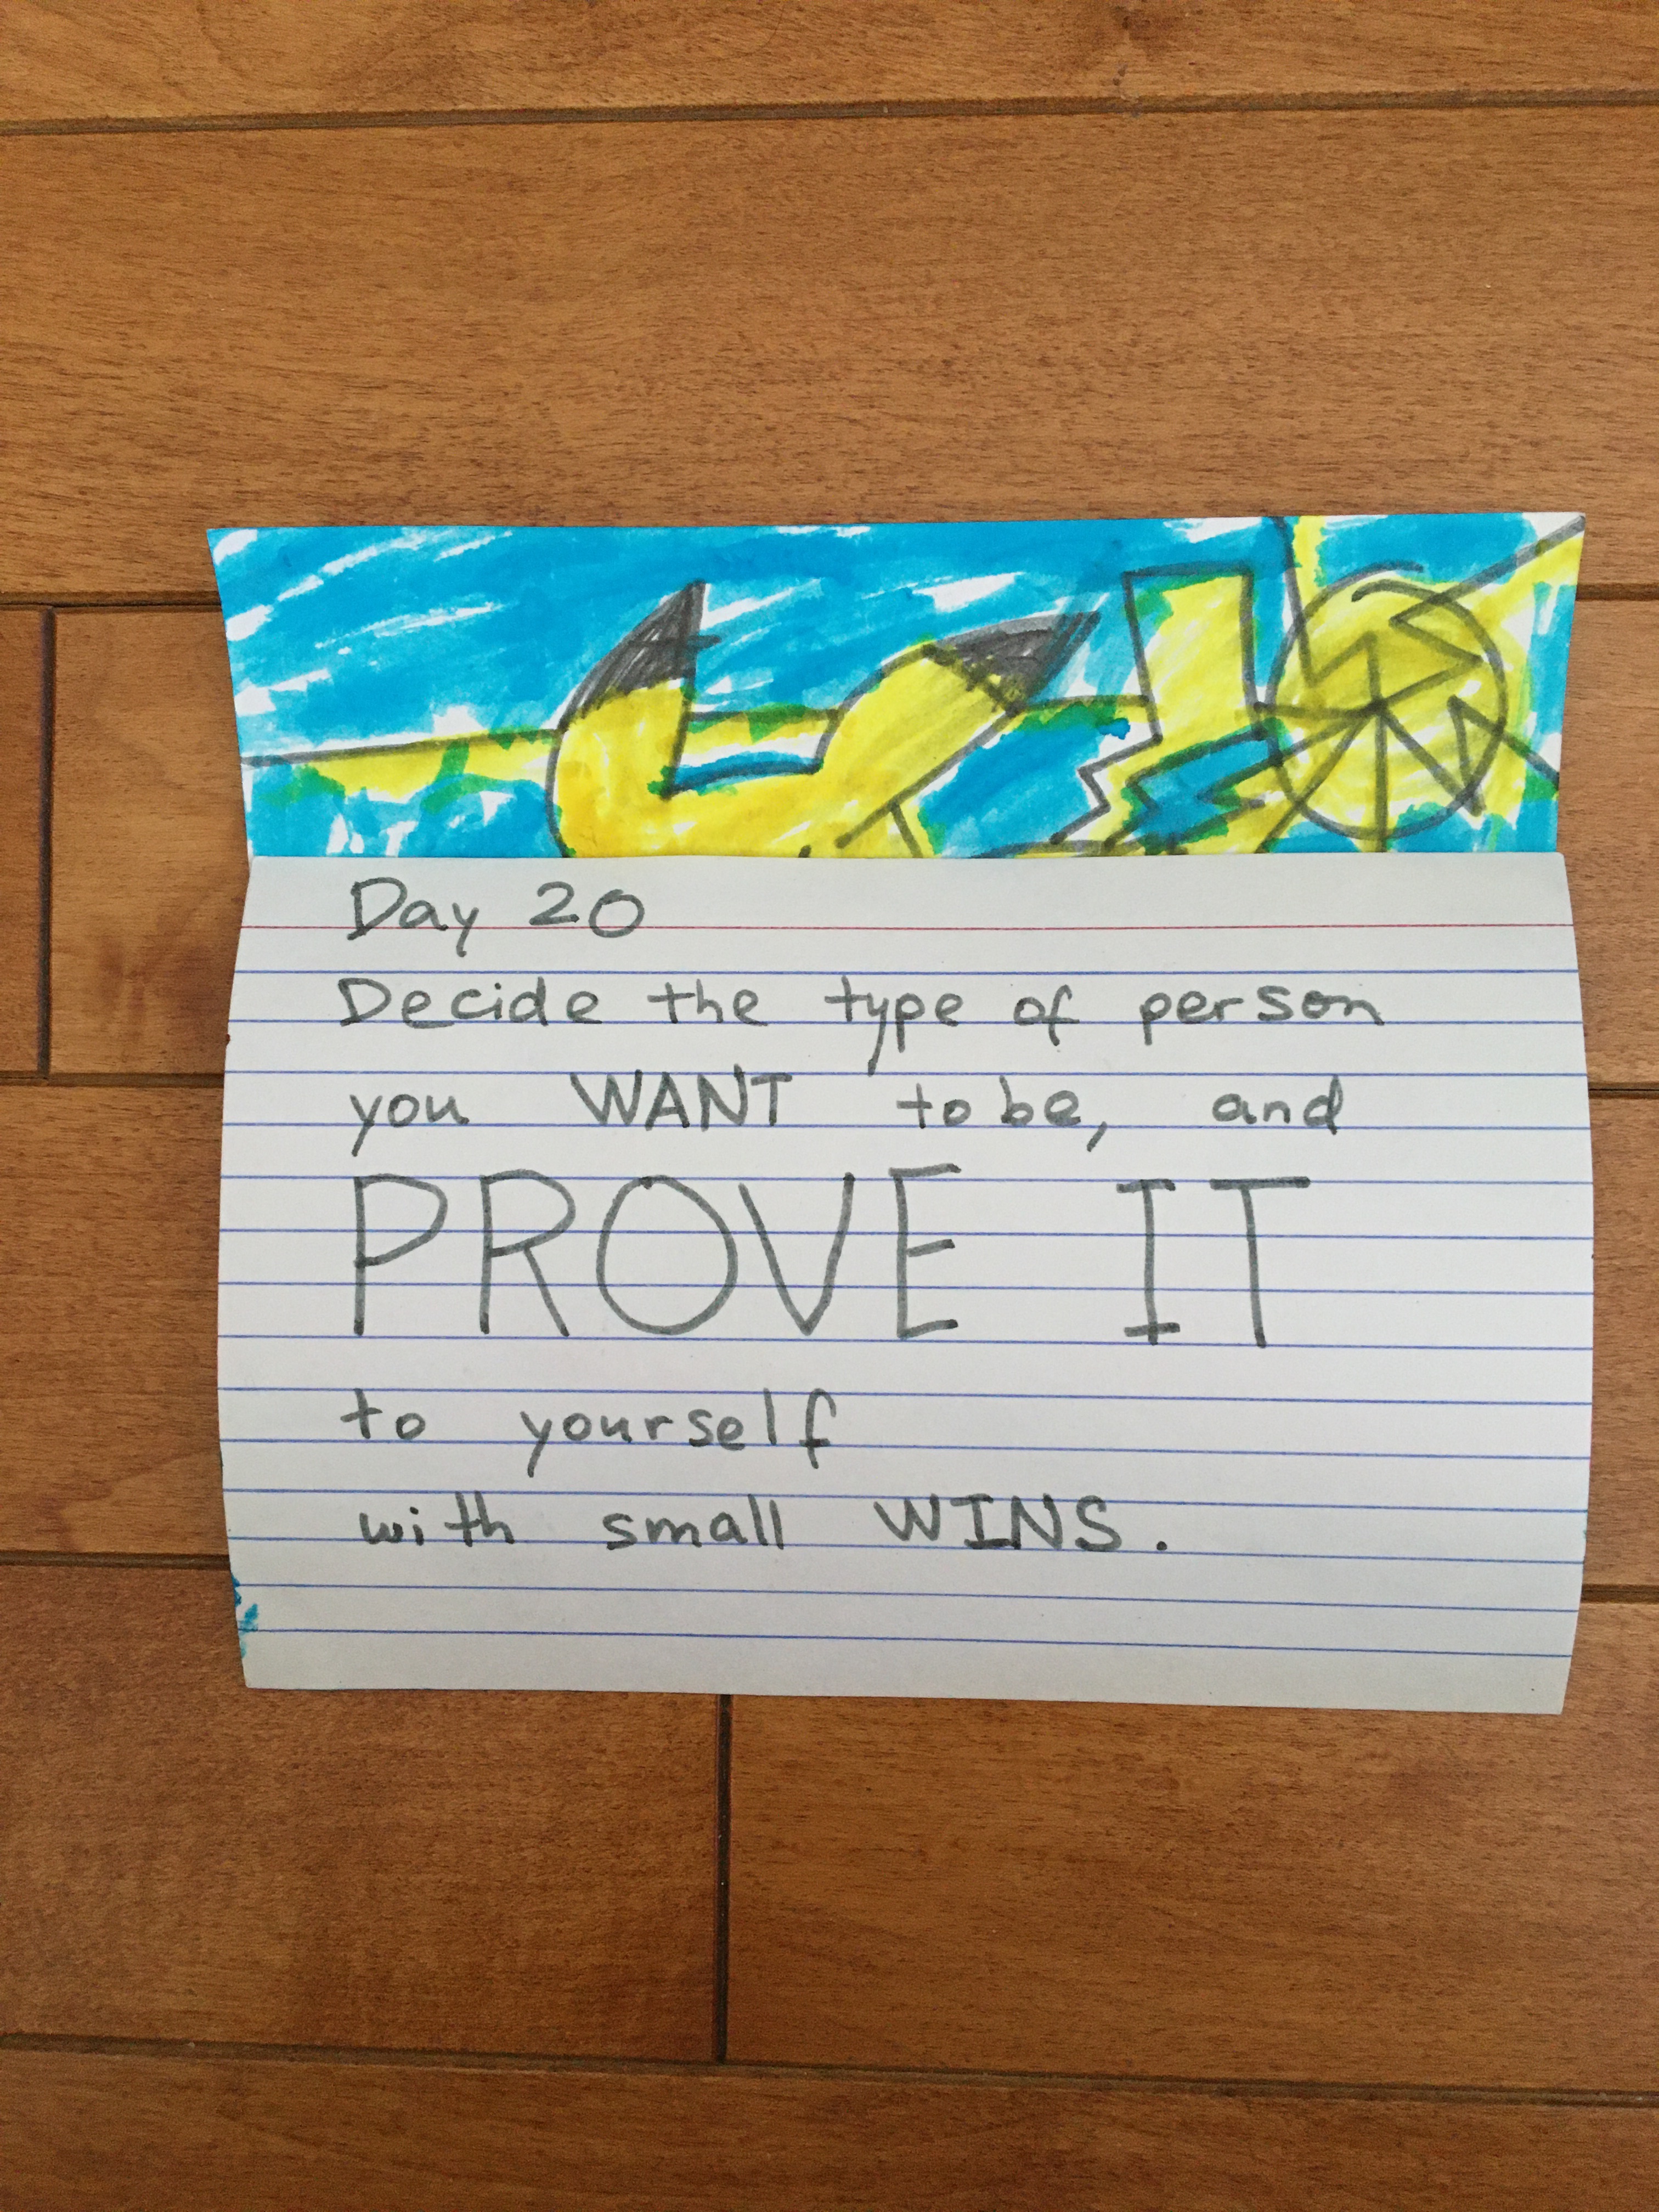 Day 20
Decide the type of person
you WANT to be, and
PROVE IT
to yourself
with small WINS.